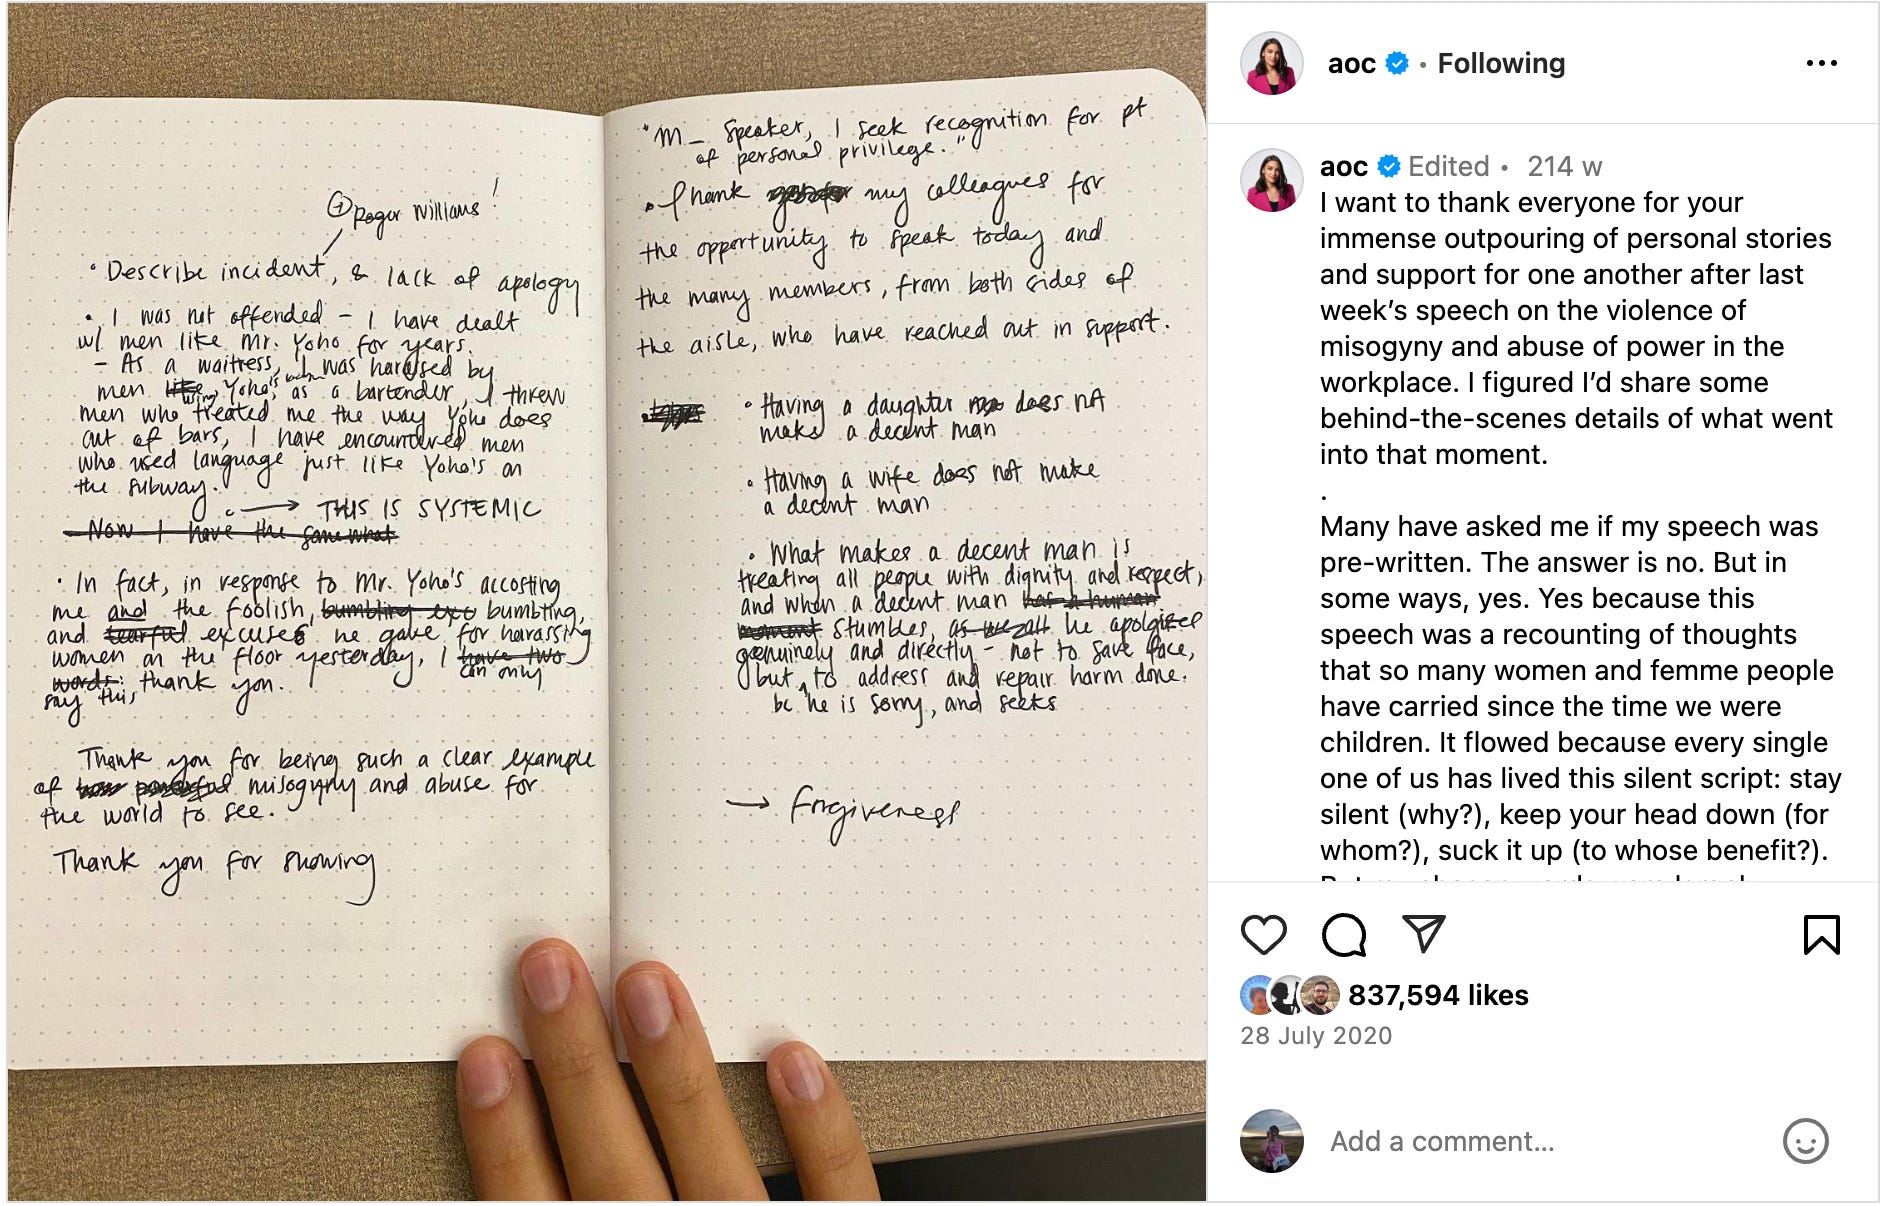 + Roger Williams!
• Describe incident, & lack of apology
• I was not offended – I have dealt
w/ men like Mr. Yoho for years.
– As a waitress, I was harassed by
men like Yoho's, as a bartender, I threw
using
men who treated me the way Yoho does
out of bars, I have encountered men
who used language just like Yoho's on
the subway.
→ THIS IS SYSTEMIC
Now I have the somewhat
• In fact, in response to Mr. Yoho's accosting
me and the foolish, bumbling exc bumbling,
and tearful excuses he gave for harassing
women on the floor yesterday, I have two
words: thank you. can only
say this,
Thank you for being such a clear example
of how powerful misogyny and abuse for
the world to see.
Thank you for showing
"M_ Speaker, I seek recognition for pt
of personal privilege."
• I thank my colleagues for
the opportunity to speak today and
the many members, from both sides of
the aisle, who have reached out in support.
• Having a daughter does not
make a decent man
• Having a wife does not make
a decent man
• What makes a decent man is
treating all people with dignity and respect,
and when a decent man has a human
moment stumbles, as we all he apologizes
genuinely and directly – not to save face,
but, to address and repair harm done.
bc he is sorry, and seeks
→ Forgiveness
aoc • Following
aoc Edited • 214 w
I want to thank everyone for your
immense outpouring of personal stories
and support for one another after last
week's speech on the violence of
misogyny and abuse of power in the
workplace. I figured I'd share some
behind-the-scenes details of what went
into that moment.
.
Many have asked me if my speech was
pre-written. The answer is no. But in
some ways, yes. Yes because this
speech was a recounting of thoughts
that so many women and femme people
have carried since the time we were
children. It flowed because every single
one of us has lived this silent script: stay
silent (why?), keep your head down (for
whom?), suck it up (to whose benefit?).
837,594 likes
28 July 2020
Add a comment...